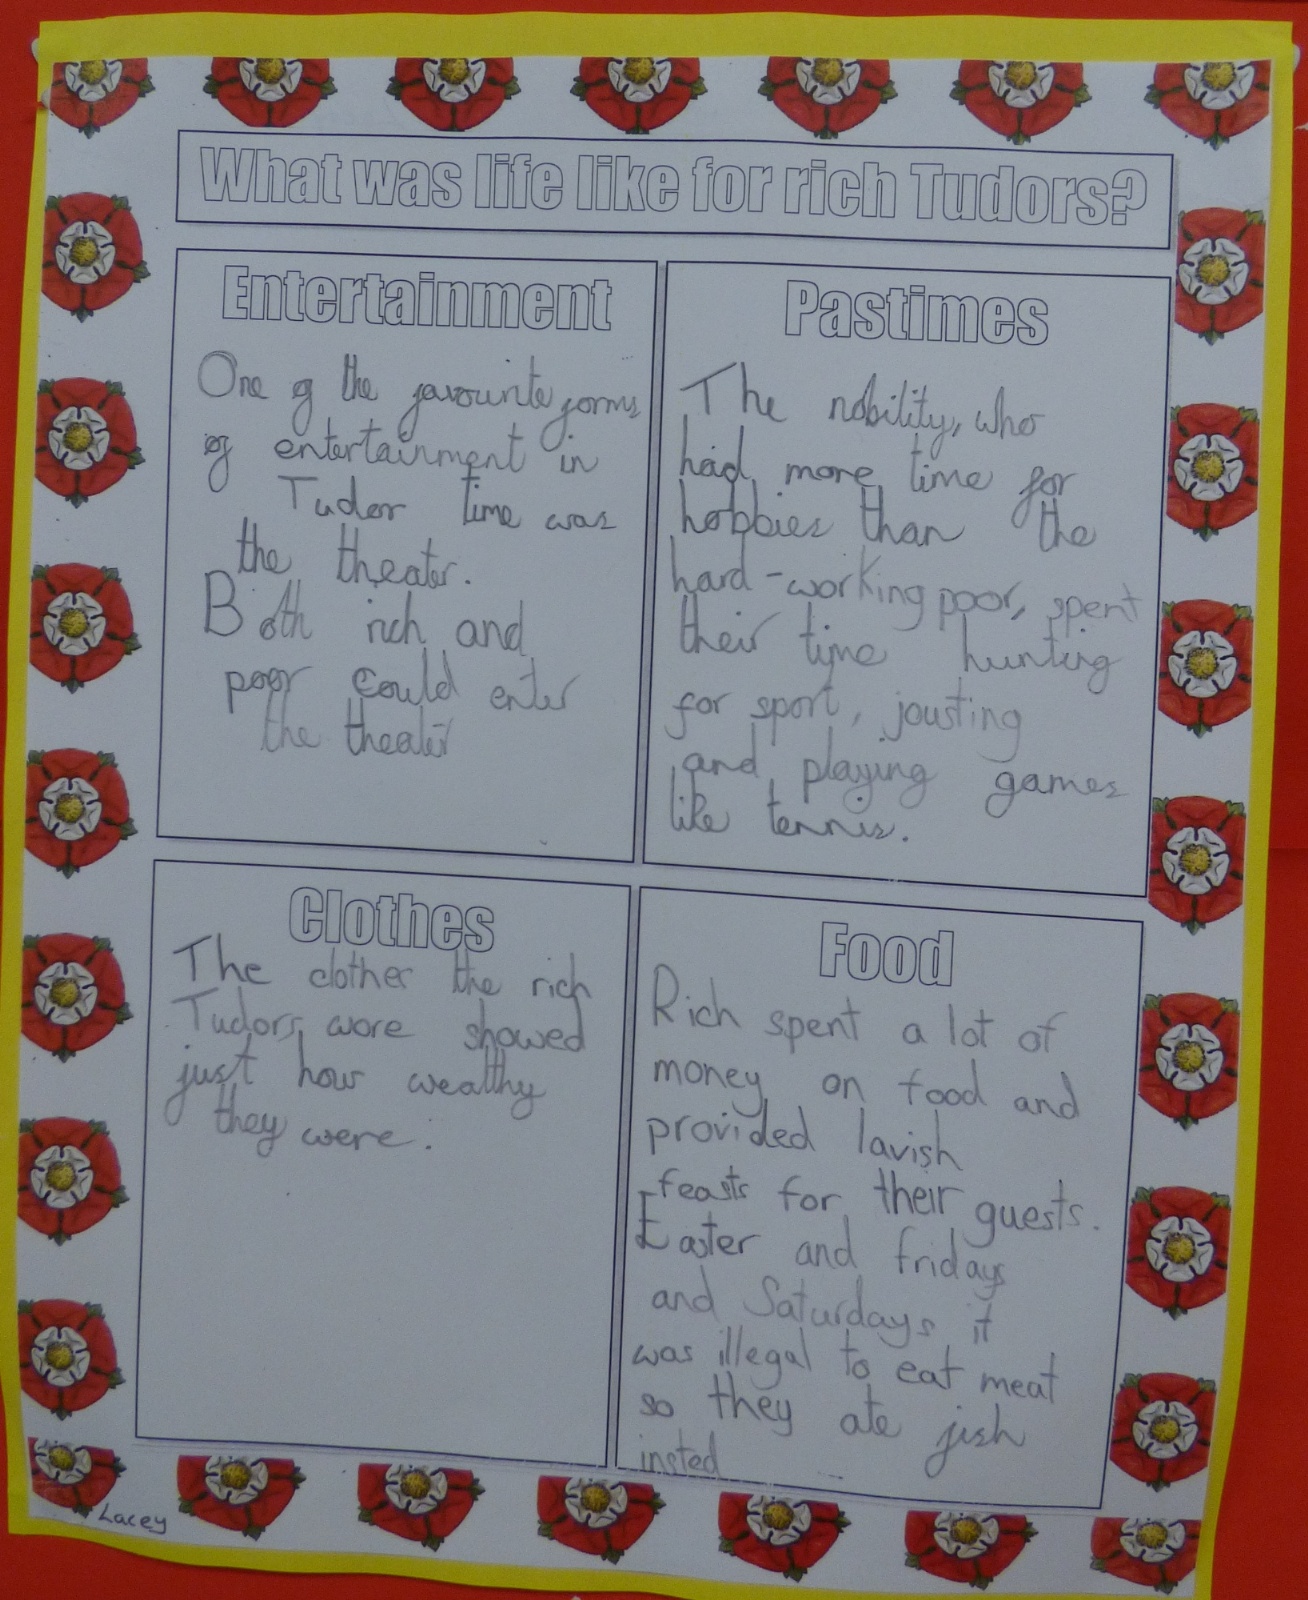 What was life like for rich Tudors?
Entertainment
One of the favourite forms
of entertainment in
Tudor time was
the theater.
Both rich and
poor could enter
the theater
Pastimes
The nobility, who
had more time for
hobbies than the
hard-working poor, spent
their time hunting
for sport, jousting
and playing games
like tennis.
Clothes
The clothes the rich
Tudors wore showed
just how wealthy
they were.
Food
Rich spent a lot of
money on food and
provided lavish
feasts for their guests.
Easter and fridays
and Saturdays it
was illegal to eat meat
so they ate fish
insted
Lacey